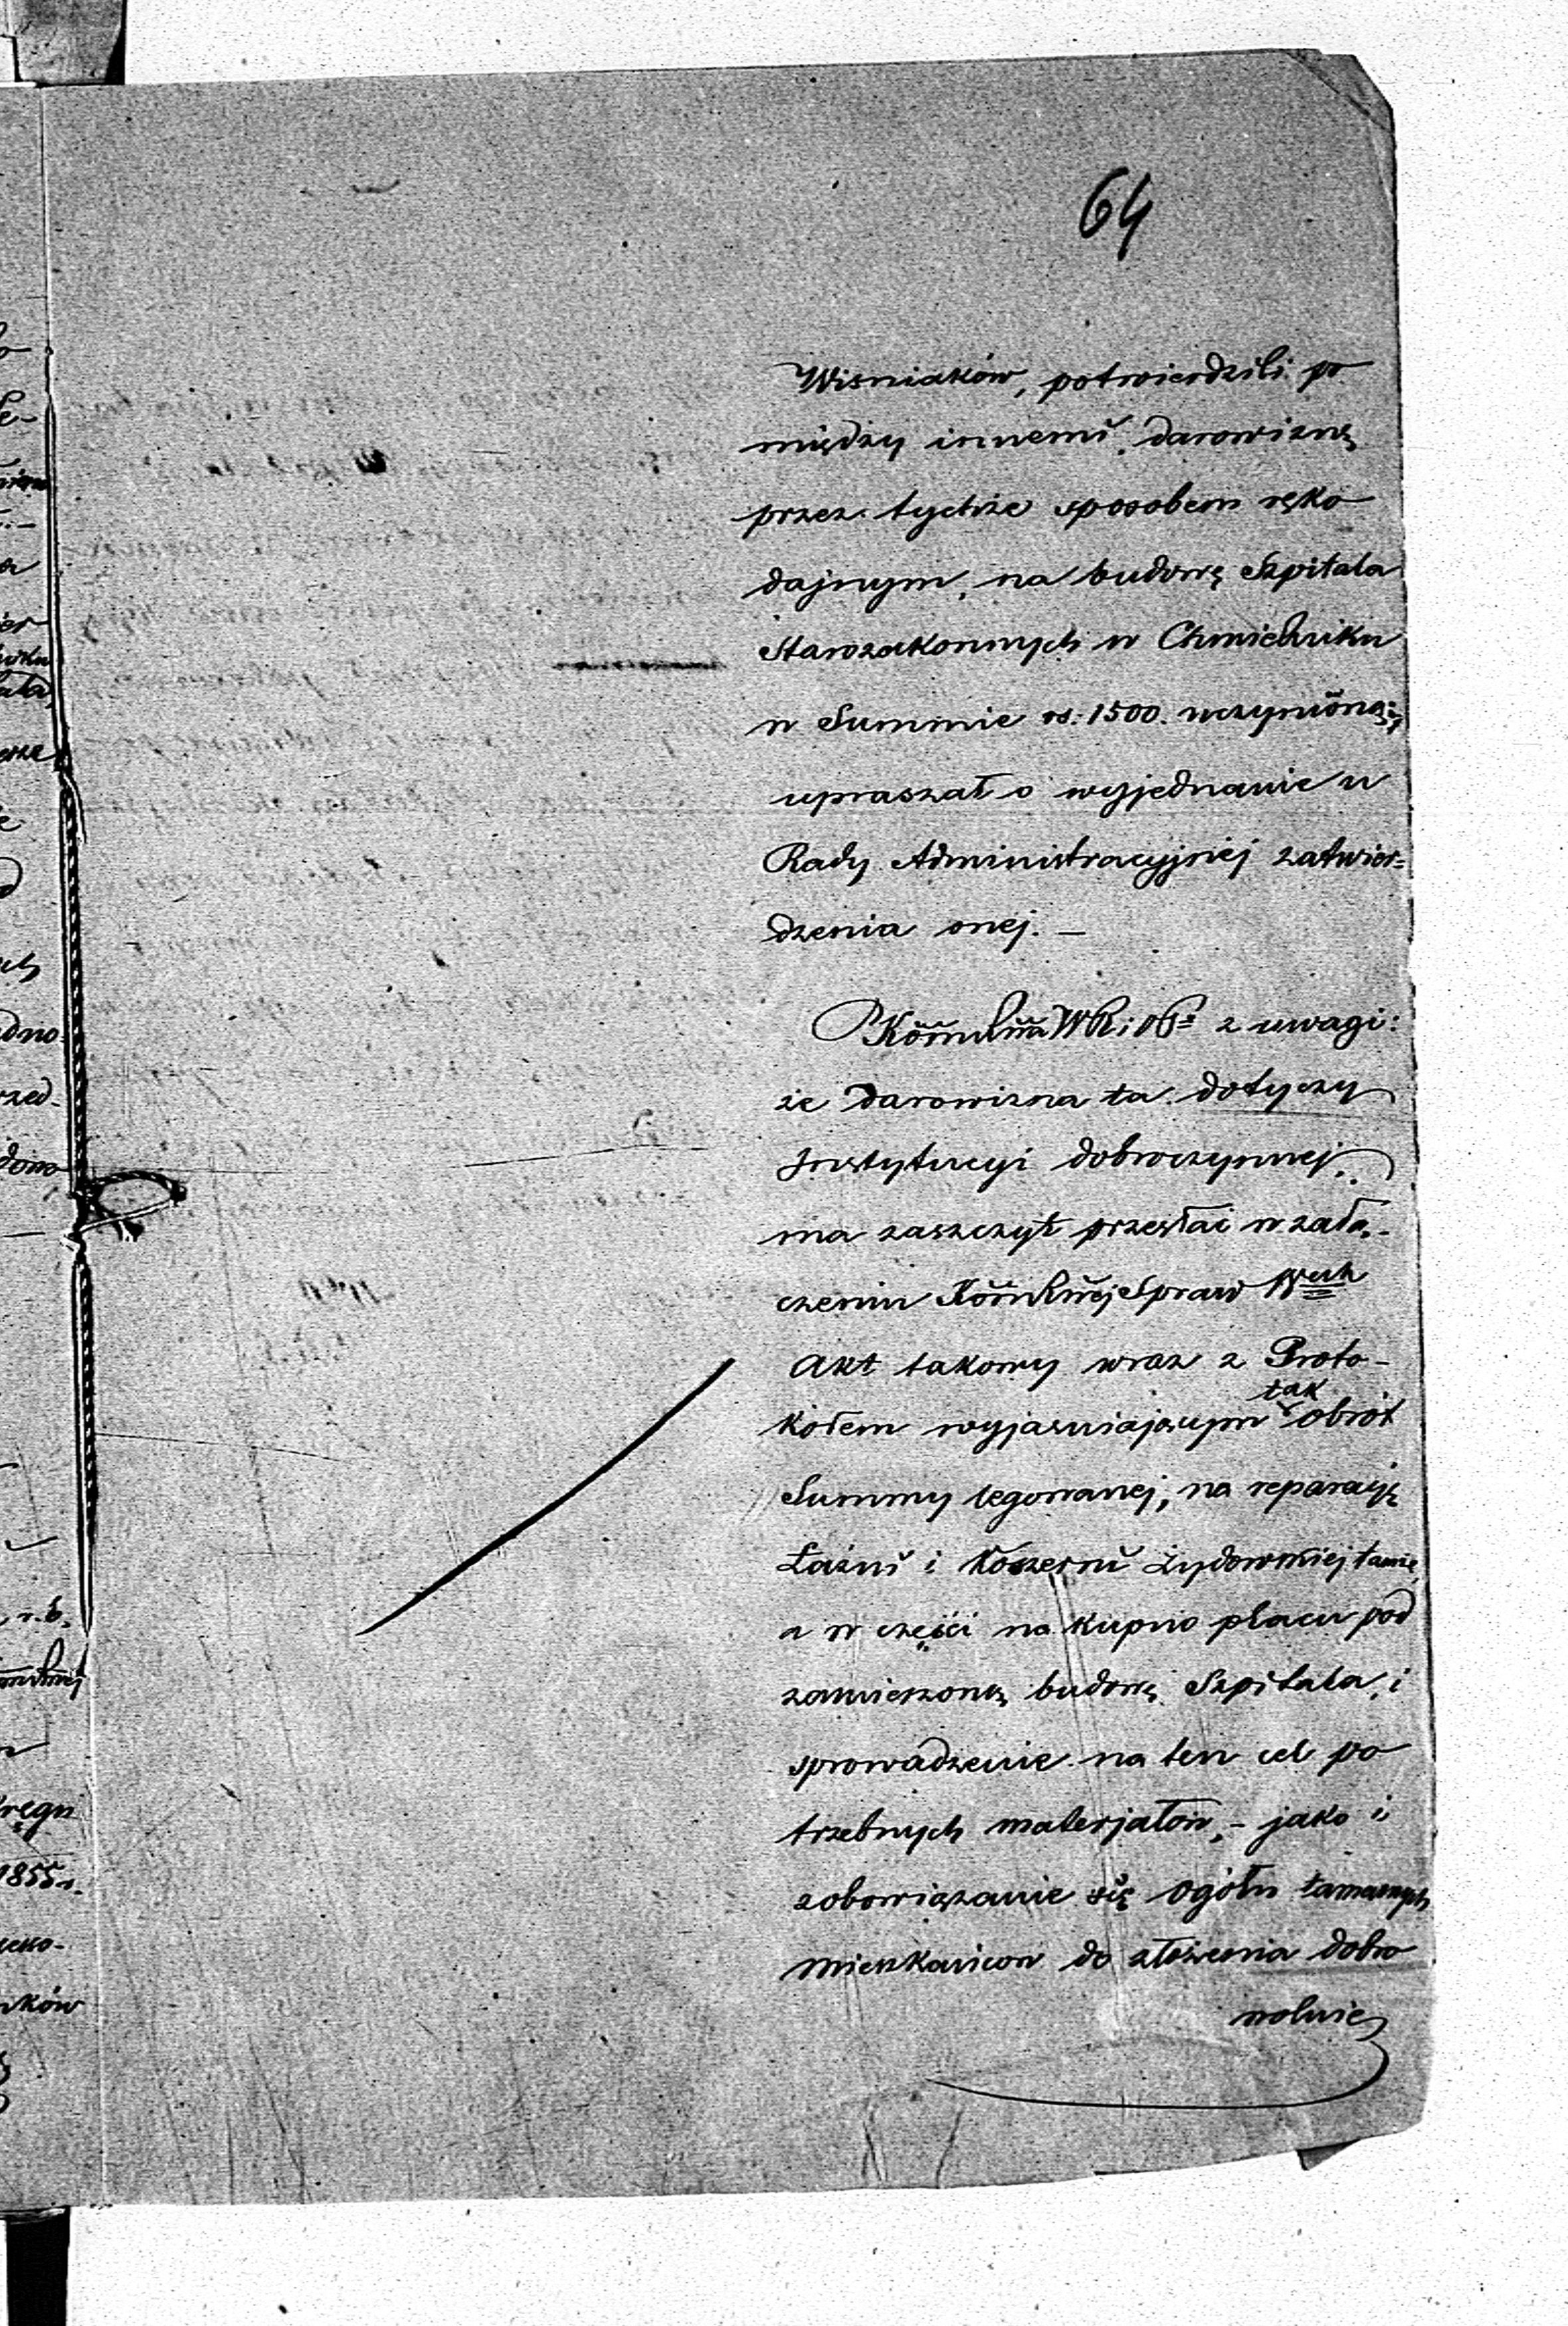 64
Wisniaków, potwierdzili po
między innemi, darowiznę
przez tychże sposobem ręko
dajnym, na budowę Szpitala
Starozakonnych w Chmielniku
w Summie rs: 1500. uczynioną;
upraszał o wyjednanie u
Rady Administracyjnej zatwier=
dzenia onej. —
z uwagi:
że darowizna ta dotyczy
Instytucyi dobroczynnej,
ma zaszczyt przesłać w załą-
czeniu Spraw
Akt takowy wraz z Proto-
kołem wyjasniającym tak obrót
Summy legowanej, na reparacyę
Łaźni i Koszerni żydowskiej tamże,
a w części na kupno placu pod
zamierzoną budowę Szpitala, i
sprowadzenie na ten cel po
trzebnych materjałow, - jako i
zobowiązanie się ogółu tamecznych
mieszkańcow do złożenia dobro
wolnie